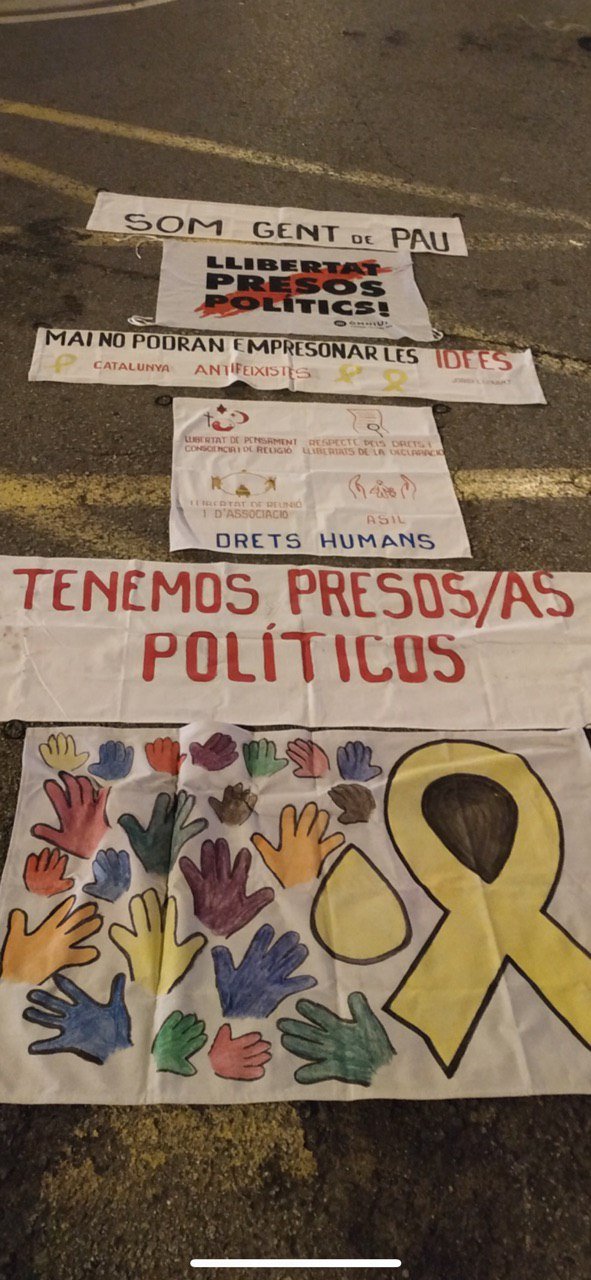 SOM GENT DE PAU
LLIBERTAT
PRESOS
POLÍTICS!
MAI NO PODRAN EMPRESONAR LES IDEES
CATALUNYA ANTIFEIXISTES
LLIBERTAT DE PENSAMENT
CONSCIENCIA I DE RELIGIÓ
RESPECTE PELS DRETS I
LLIBERTATS DE LA DECLARACIÓ
LLIBERTAT DE REUNIÓ
I D'ASSOCIACIÓ
ASIL
DRETS HUMANS
TENEMOS PRESOS/AS
POLÍTICOS